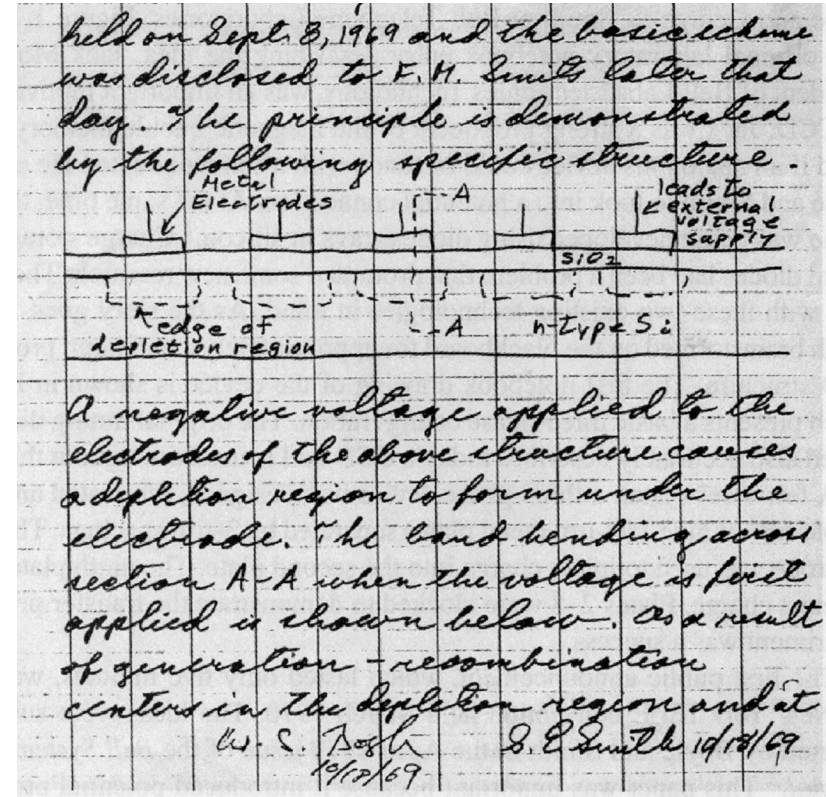 held on Sept. 8, 1969 and the basic scheme
was disclosed to F. M. Smits later that
day. The principle is demonstrated
by the following specific structure.
Metal
Electrodes
A
leads to
external
voltage
supply
SiO2
edge of
depletion region
A
n-type Si
A negative voltage applied to the
electrodes of the above structure causes
a depletion region to form under the
electrode. The band bending across
section A-A when the voltage is first
applied is shown below. As a result
of generation - recombination
centers in the depletion region and at
W. S.
10/18/69
G. E. Smith 10/18/69